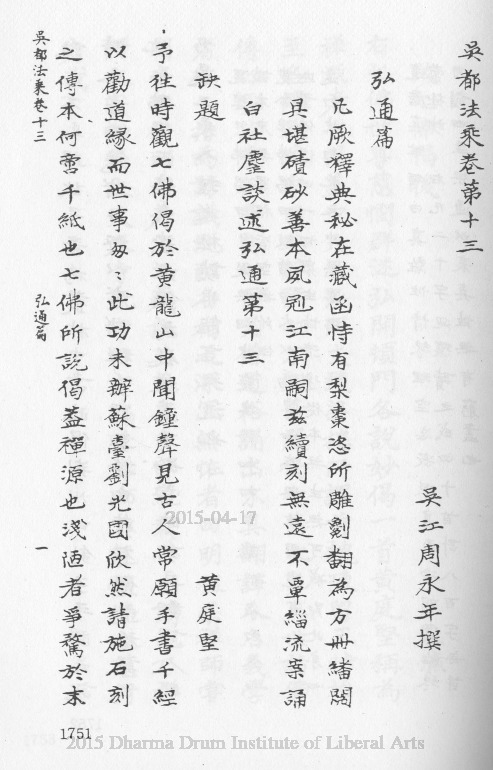 吳都法乘卷第十三
吳江周永年撰
弘通篇
凡厥釋典秘在藏函恃有梨棗恣所雕劖翻為方冊繙閱
具堪磧砂善本夙冠江南嗣茲續刻無遠不覃緇流案誦
白社麈談述弘通第十三
缺題 黃庭堅
予往時觀七佛偈於黃龍山中聞鐘聲見古人常願手書千經
以勸道緣而世事匆匆此功未辦蘇臺劉光國欣然請施石刻
之傳本何啻千紙也七佛所說偈葢禪源也淺陋者爭騖於末
吳都法乘卷十三 弘通篇 一
1751
2015-04-17
2015 Dharma Drum Institute of Liberal Arts